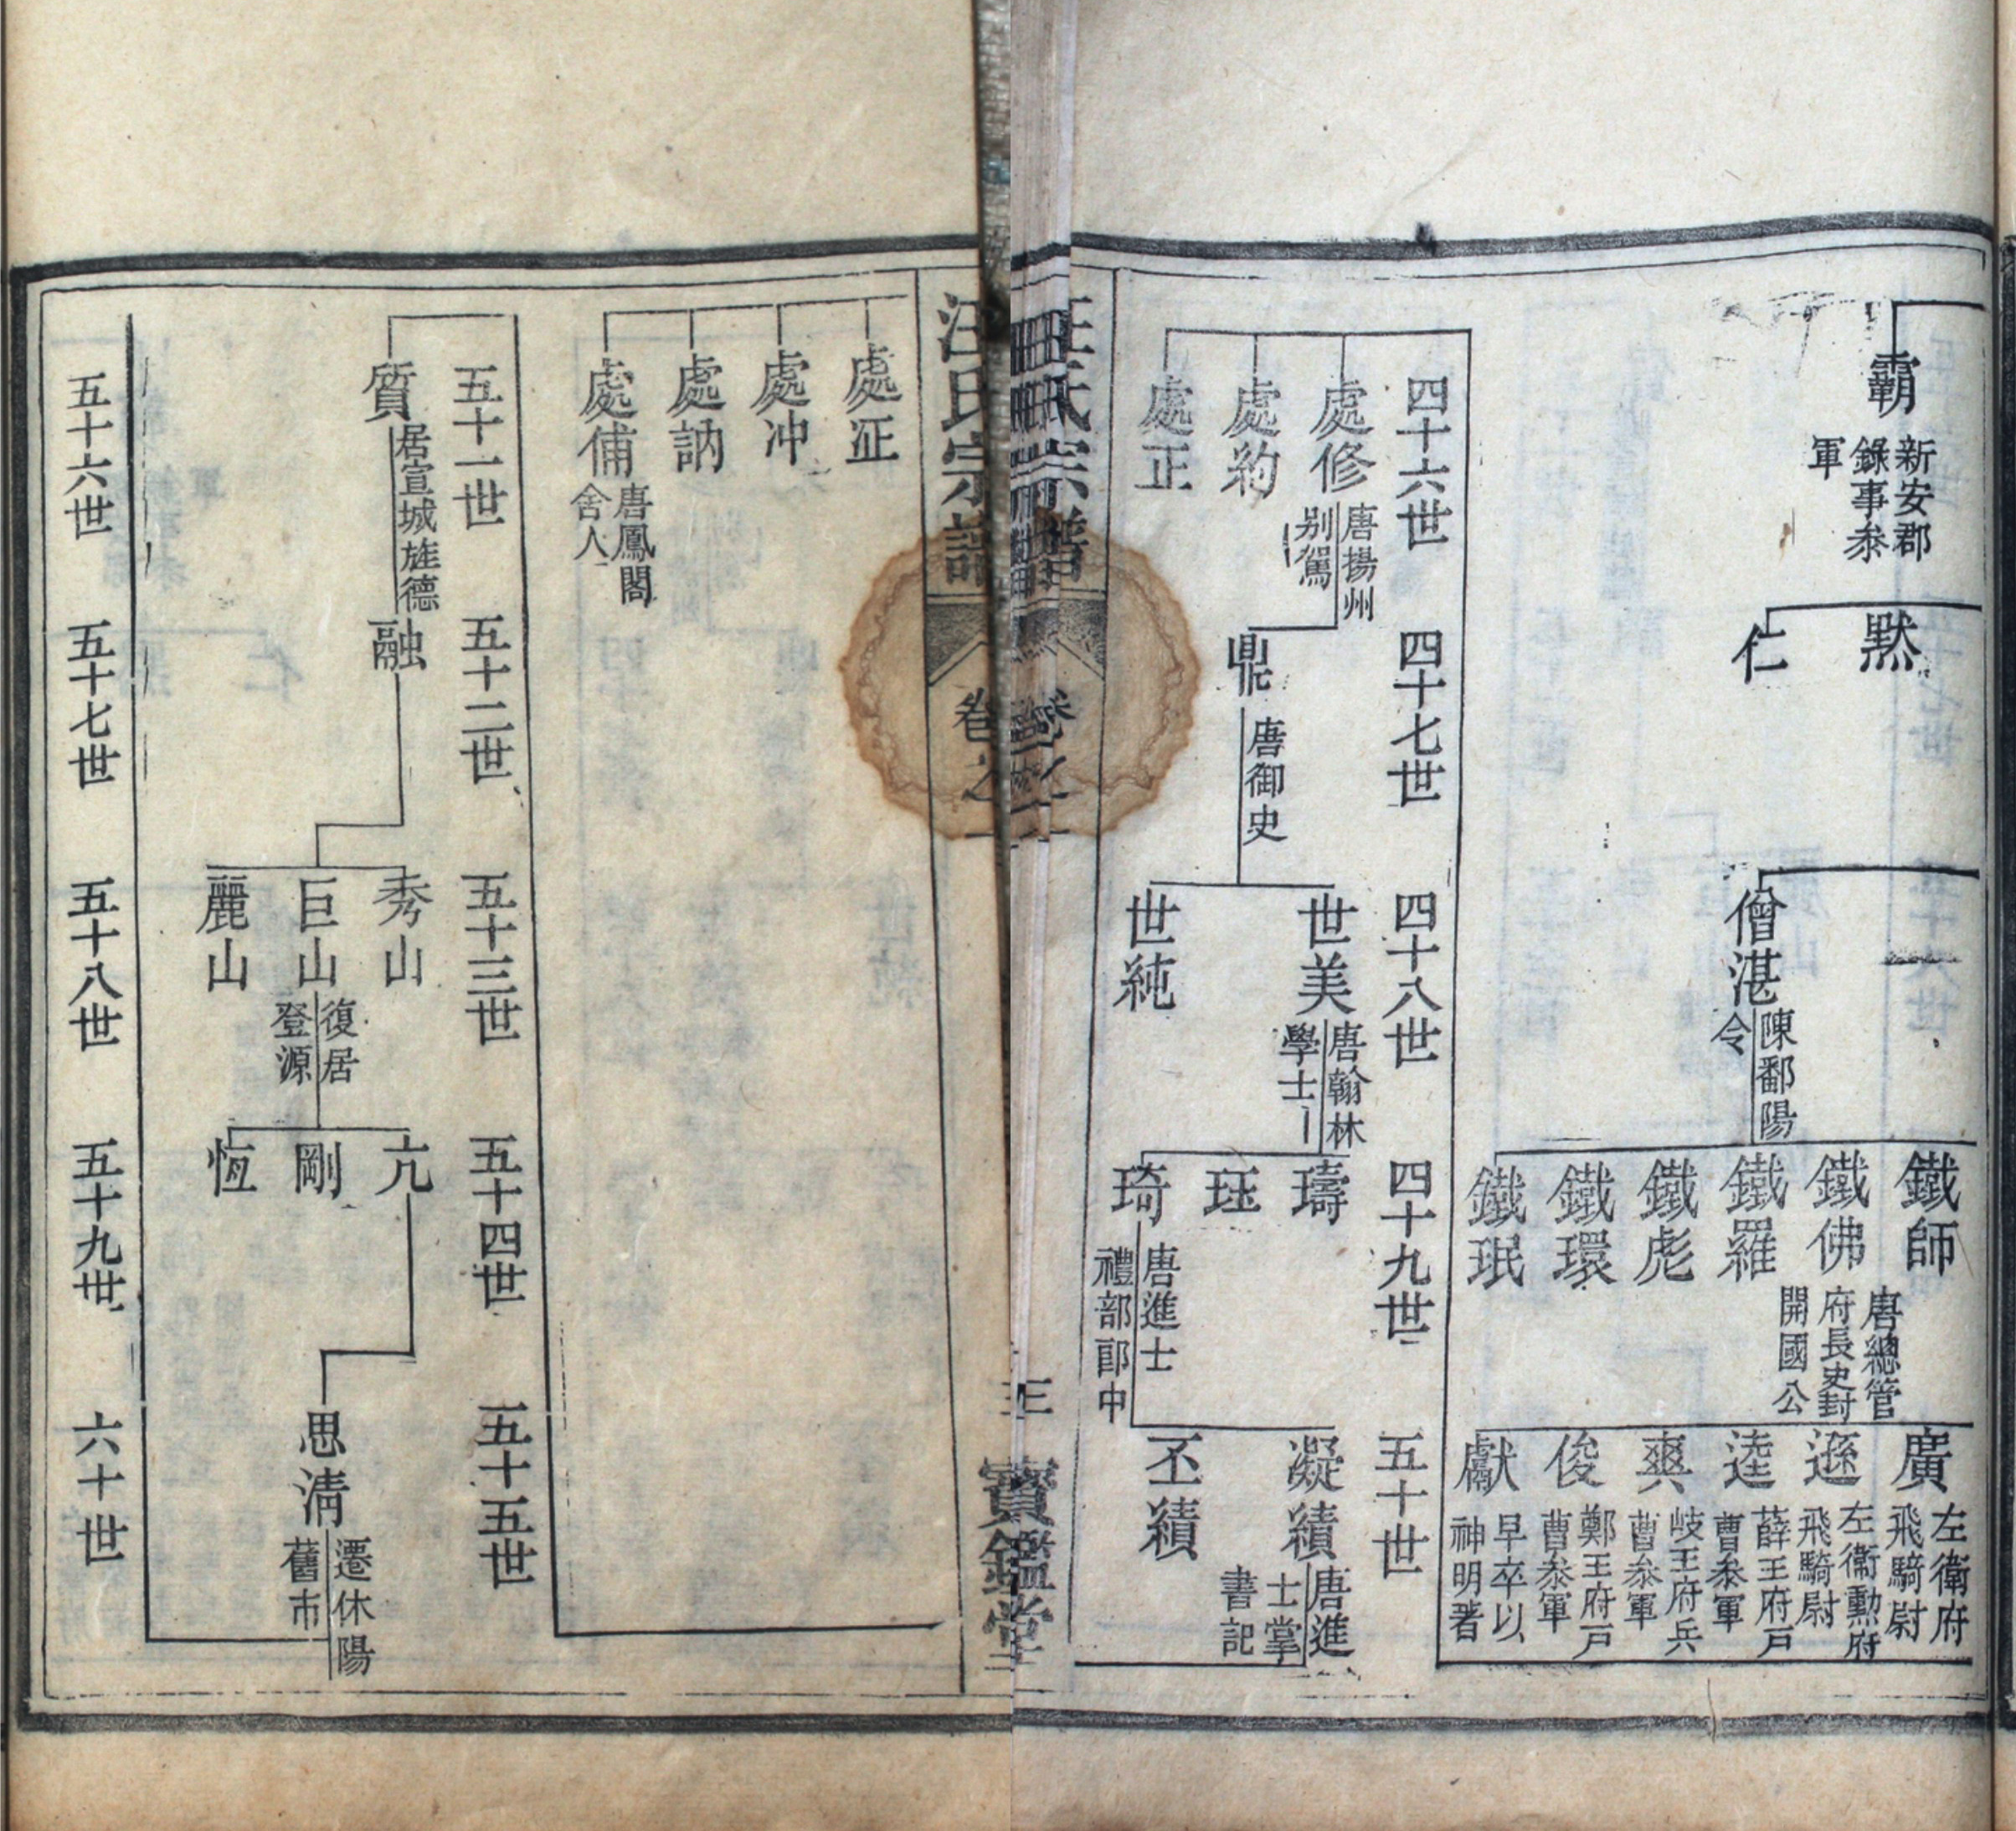 霸
新安郡
錄事叅
軍
默
仁
僧湛
陳鄱陽
令
鐵師
鐵佛
唐總管
府長史封
開國公
鐵羅
鐵彪
鐵環
鐵珉
廣
左衛府
飛騎尉
遜
左衛勳府
飛騎尉
逵
薛王府戶
曹叅軍
爽
岐王府兵
曹叅軍
俊
鄭王府戶
曹叅軍
獻
早卒以
神明著
四十六世
四十七世
四十八世
四十九世
五十世
處修
唐揚州
别駕
處約
處正
鼎
唐御史
世美
唐翰林
學士
世純
璹
珏
琦
唐進士
禮部郎中
凝績
唐進
士掌
書記
丕績
汪氏宗譜
卷之二
寶鑑堂
處冲
處訥
處俌
唐鳳閣
舍人
五十一世
五十二世
五十三世
五十四世
五十五世
質
居宣城旌德
融
秀山
巨山
復居
登源
麗山
亢
剛
恆
思清
遷休陽
舊市
五十六世
五十七世
五十八世
五十九世
六十世